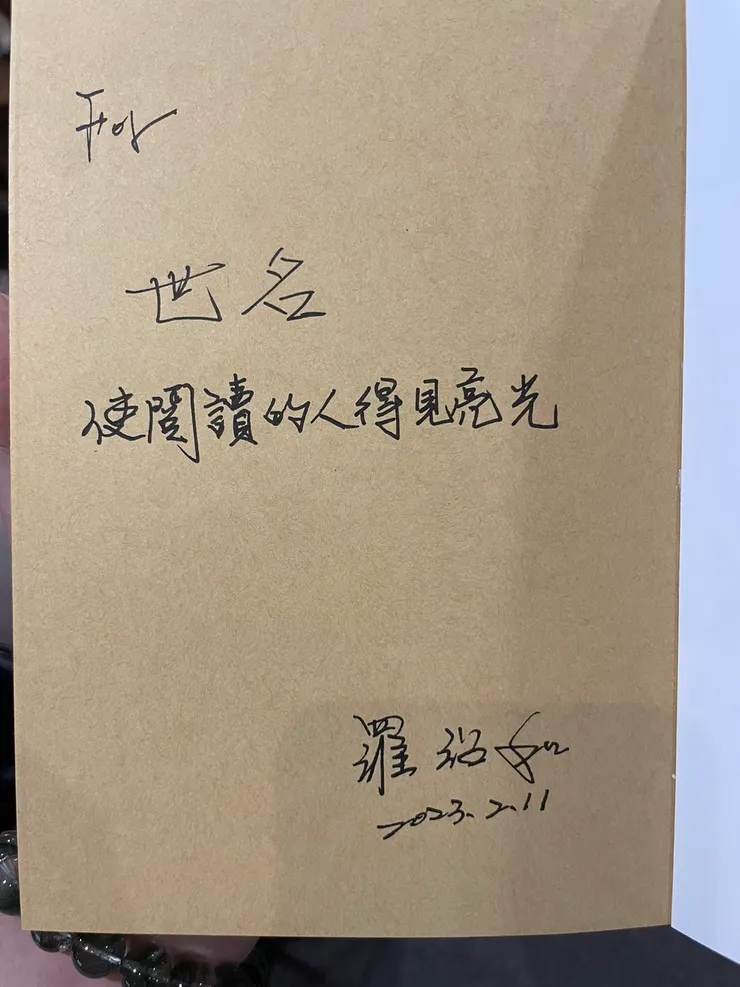 For
世名
使閱讀的人得見亮光
羅紹和
2023.2.11